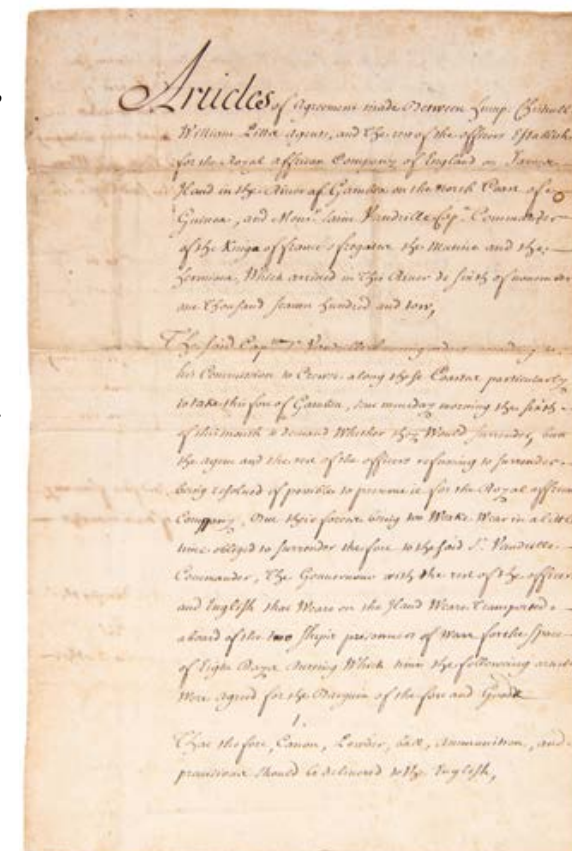 Articles of Agreement made Between Hump: Chishull
William Little agents, and the rest of the officers Establish
for the Royal affrican Company of England on James
Iland in the River of Gambia on the north Coast of
Guinea, and Monr. Vaudrille Esqr. Commander
of the Kings of france's fregatts the Mutine and the
hermione, Which arrived in This River de sixth of november
one Thousand seaven hundred and tow,
The said Capttn Sr. Vaudrille according to
his Commission to Crowse along those Coastes particularly
to take this fort of Gambia, sent munday morning the sixth
of this month to demand Whether they Would surrender, but
the agent and the rest of the officers refusing to surrender
being resolved if possible to preserve it for the Royal affrican
Company, But their forces being too Weake Wear in a little
time obliged to surrender the fort to the said Sr. Vaudrille
Commander, The Gouvernour with the rest of the officers
and English that Weare on the Iland Weare Transported
aboard of the two Shipes prisonners of Warr for the space
of Eight Dayes During Which time the following
Were Agreed for the Barguin of the fort and Goods
1.
That the fort, Canon, Powder, ball, Ammunition, and
provisions should be delivered to the English,